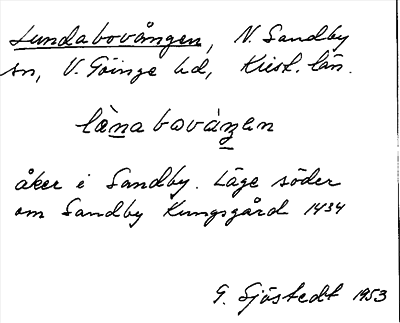 Lundabovången, N. Sandby
sn, V. Göinge hd, Krist. län.
lòna bovάŋen
åker i Sandby. Läge söder
om Sandby Kungsgård 1434
G. Sjöstedt 1953